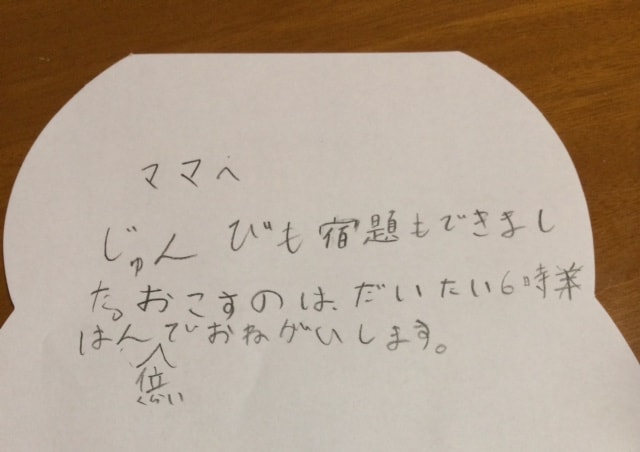 ママへ
じゅんびも宿題もできまし
た。おこすのは、だいたい6時
はんでおねがいします。
位
くらい